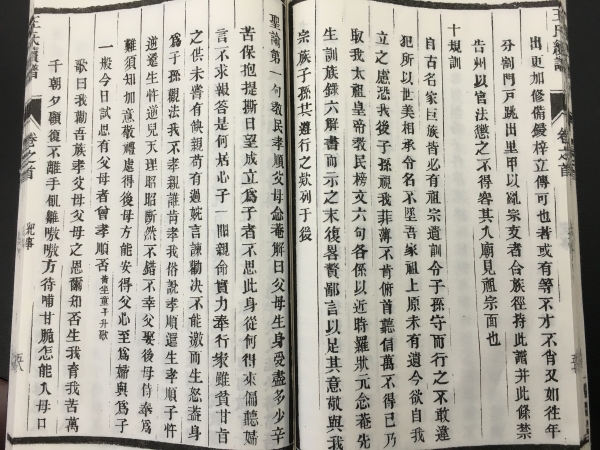 出更加修備鋟梓立傳可也若或有等不才不肖又如往年
分割門戸跳出里甲以亂宗支者合族徑持此譜并此條禁
告州以官法懲之不得容其入廟見祖宗面也
十規訓
自古名家巨族皆必有祖宗遺訓令子孫守而行之不敢違
犯所以世美相承令名不墜吾家祖上原未有遺今欲自我
立之慮恐我後子孫視我菲薄不肯俯首聽信萬不得已乃
取我太祖皇帝教民榜文六句各係以近時羅狀元念菴先
生訓族錄六解書而示之末復畧贅鄙言以足其意敬與我
宗族子孫共遵行之欵列于後
聖諭第一句教民孝順父母念菴解曰父母生身受盡多少辛
苦保抱提撕日望成立爲子者不思此身從何得來偏聽婦
言不求報答是何居心子一聞親命實力奉行家雖貧甘旨
之供未嘗有缺親苟有過婉言諫勸决不能激而生怒葢身
爲子孫觀法我不孝親誰肯孝我俗說孝順還生孝順子忤
逆還生忤逆兒天理昭昭斷然不錯不幸父娶後母侍奉爲
難須知加意敬禮處得後母方能安得父心至爲婦與爲子
一般今日試思有父母者曾孝順否 青坐童子升歌
歌曰我勸吾族孝父母父母之恩爾知否生我育我苦萬
千朝夕顧復不離手呱雛嗷嗷方待哺甘脆怎能入母口
王氏續譜
卷之首
紀事